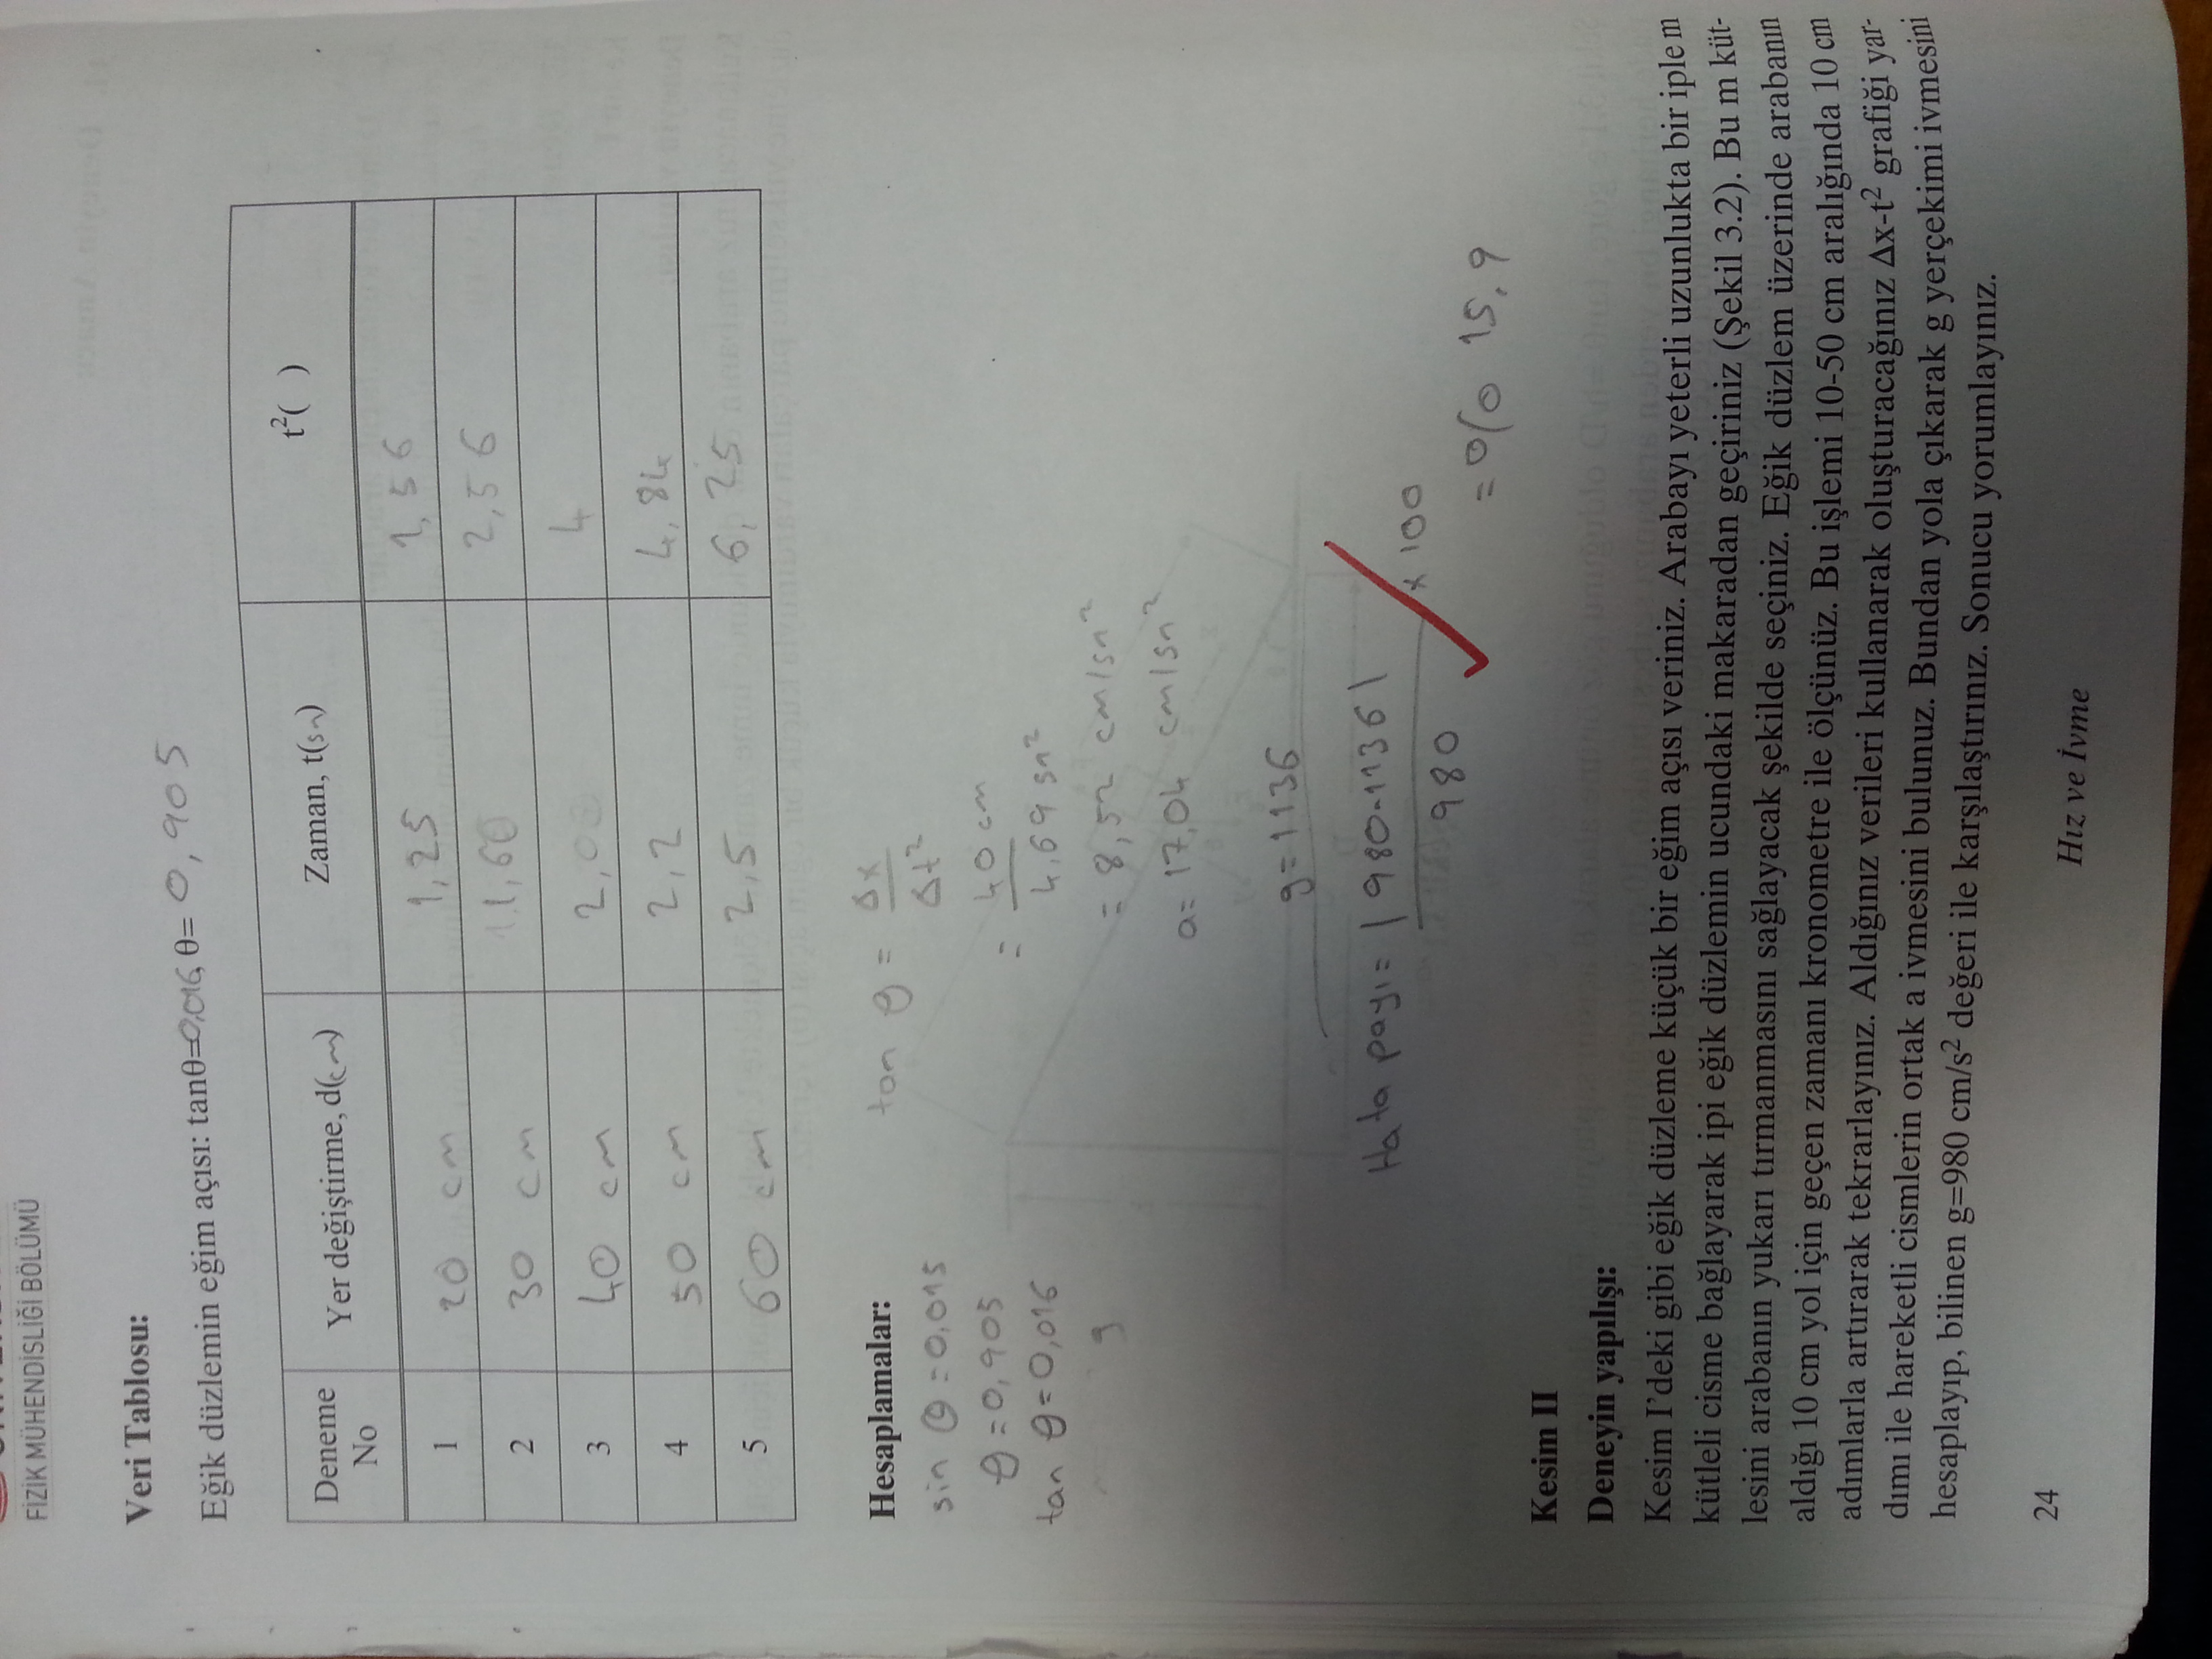 FİZİK MÜHENDİSLİĞİ BÖLÜMÜ
Veri Tablosu:
Eğik düzlemin eğim açısı: tanθ=0,016, θ= 0,905
Deneme No
Yer değiştirme, d(cm)
Zaman, t(sn)
t²( )
1 20 cm 1,25 1,56
2 30 cm 1,60 2,56
3 40 cm 2,00 4
4 50 cm 2,2 4,84
5 60 cm 2,5 6,25
Hesaplamalar:
sin θ = 0,015
θ = 0,905
tan θ = 0,016
g
tan θ = Δx / Δt²
= 40 cm / 4,69 sn²
= 8,52 cm/sn²
a= 17,04 cm/sn²
g = 1136
Hata payı = |980-1136| / 980 x 100
= % 15,9
Kesim II
Deneyin yapılışı:
Kesim I'deki gibi eğik düzleme küçük bir eğim açısı veriniz. Arabayı yeterli uzunlukta bir iple m
kütleli cisme bağlayarak ipi eğik düzlemin ucundaki makaradan geçiriniz (Şekil 3.2). Bu m küt-
lesini arabanın yukarı tırmanmasını sağlayacak şekilde seçiniz. Eğik düzlem üzerinde arabanın
aldığı 10 cm yol için geçen zamanı kronometre ile ölçünüz. Bu işlemi 10-50 cm aralığında 10 cm
adımlarla artırarak tekrarlayınız. Aldığınız verileri kullanarak oluşturacağınız Δx-t² grafiği yar-
dımı ile hareketli cismlerin ortak a ivmesini bulunuz. Bundan yola çıkarak g yerçekimi ivmesini
hesaplayıp, bilinen g=980 cm/s² değeri ile karşılaştırınız. Sonucu yorumlayınız.
24
Hız ve İvme